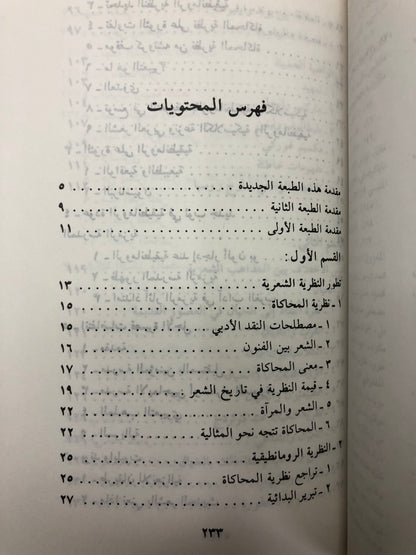 فهرس المحتويات
مقدمة هذه الطبعة الجديدة ٥
مقدمة الطبعة الثانية ٩
مقدمة الطبعة الأولى ١١
القسم الأول:
تطور النظرية الشعرية ١٣
١ - نظرية المحاكاة ١٥
١ - مصطلحات النقد الأدبي ١٥
٢ - الشعر بين الفنون ١٦
٣ - معنى المحاكاة ١٧
٤ - قيمة النظرية في تاريخ الشعر ١٩
٥ - الشعر والمرآة ٢٢
٦ - المحاكاة تتجه نحو المثالية ٢٢
٢ - النظرية الرومانطيقية ٢٥
١ - تراجع نظرية المحاكاة ٢٥
٢ - تبرير البدائية ٢٧
٢٣٣